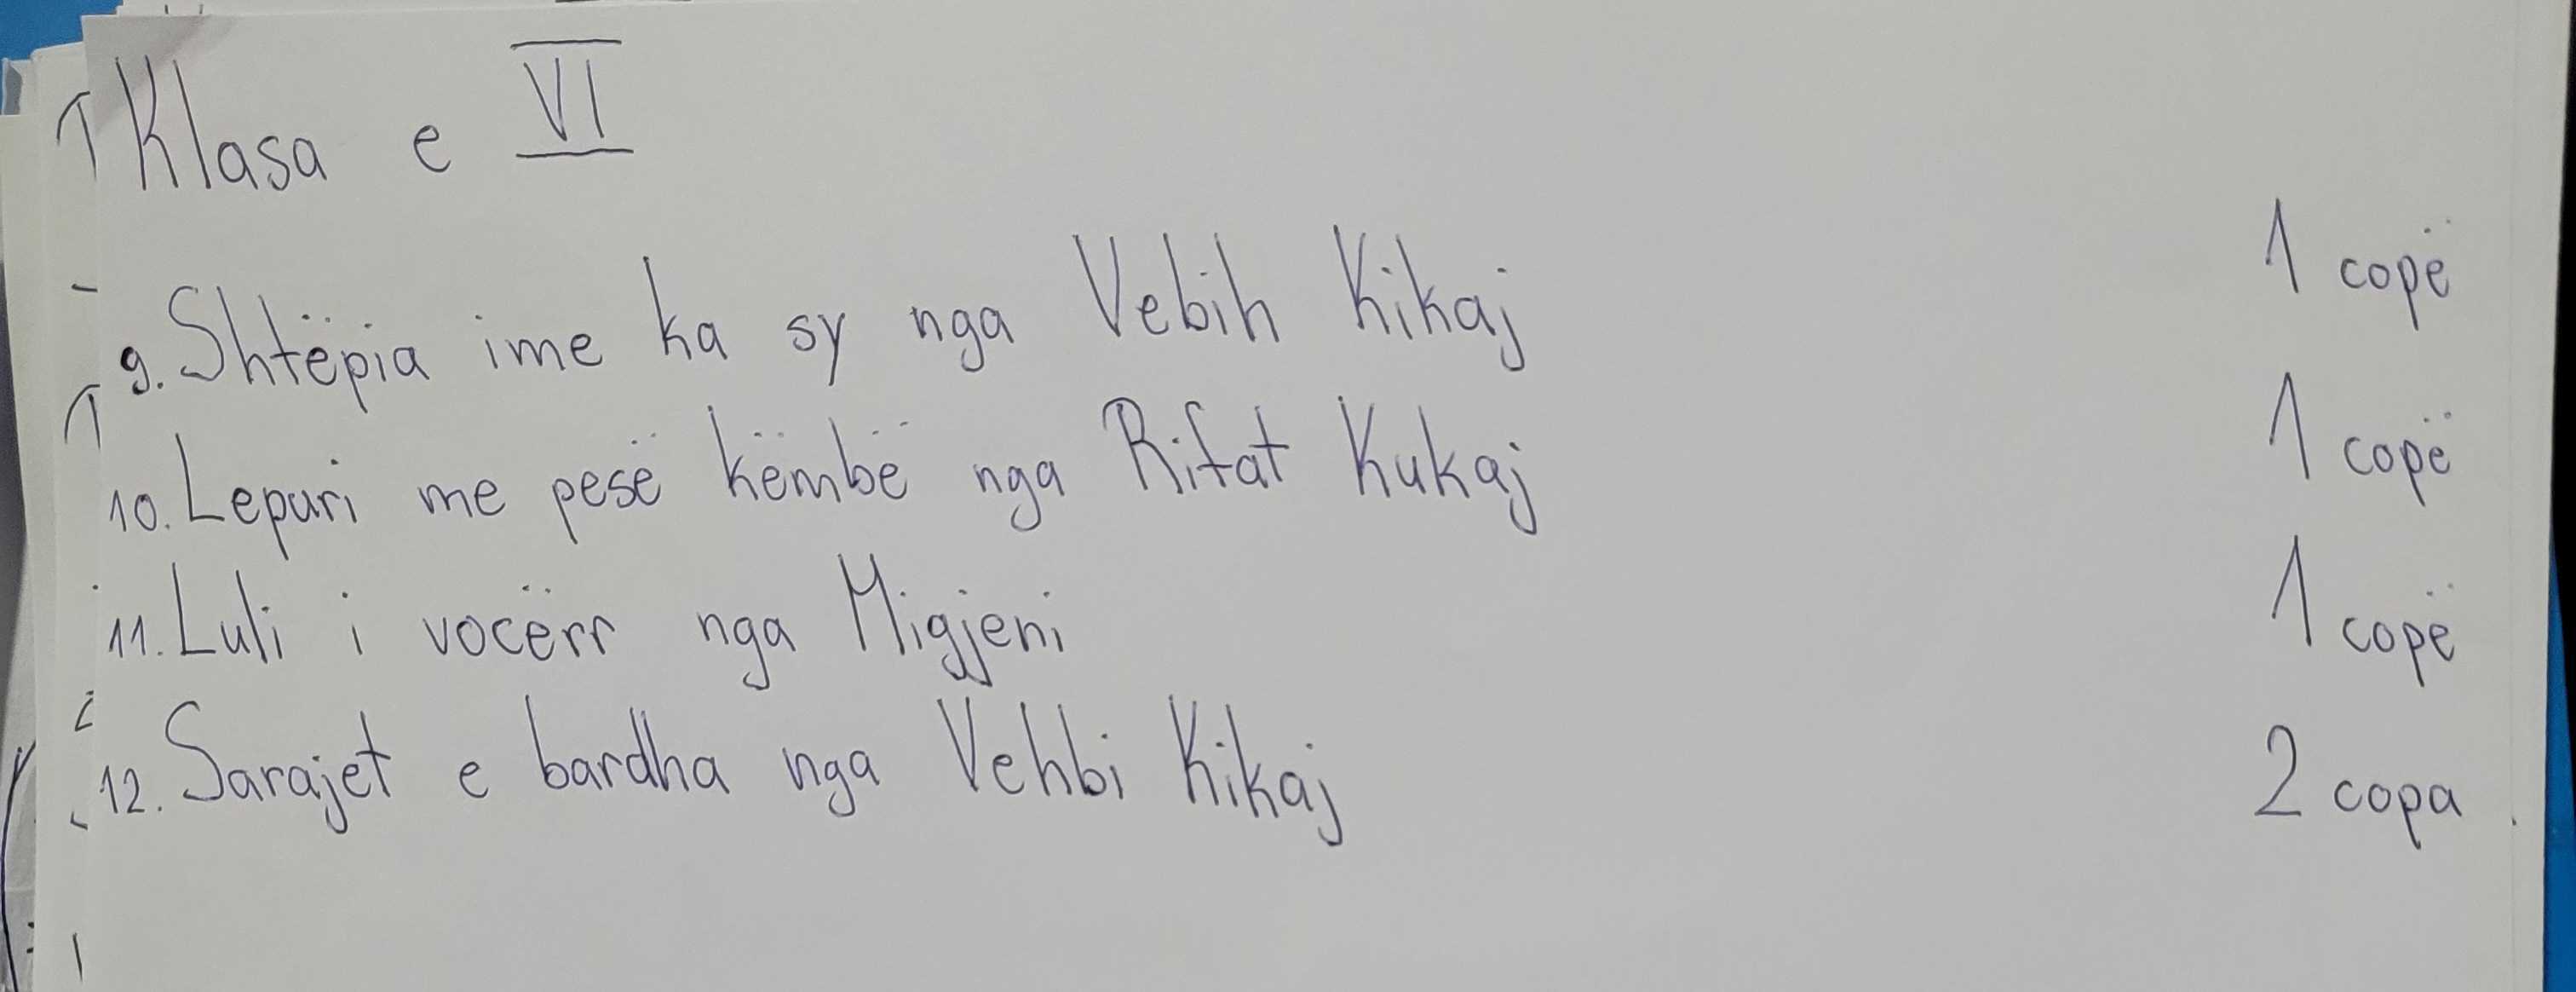 Klasa e VI
9. Shtëpia ime ka sy nga Vebih Kikaj 1 copë
10. Lepuri me pesë këmbë nga Rifat Kukaj 1 copë
11. Luli i vocërr nga Migjeni 1 copë
12. Sarajet e bardha nga Vehbi Kikaj 2 copa